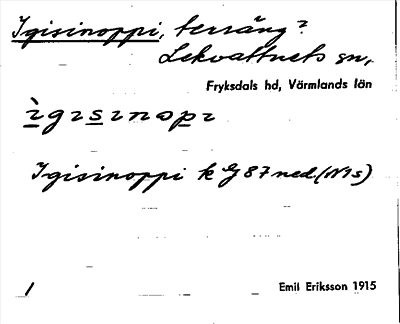 Igisinoppi, terräng?
Lekvattnets sn,
Fryksdals hd, Värmlands län
ìgɪsɪnopɪ
Igisinoppi k G 87 ned. (N 1 s)
1
Emil Eriksson 1915